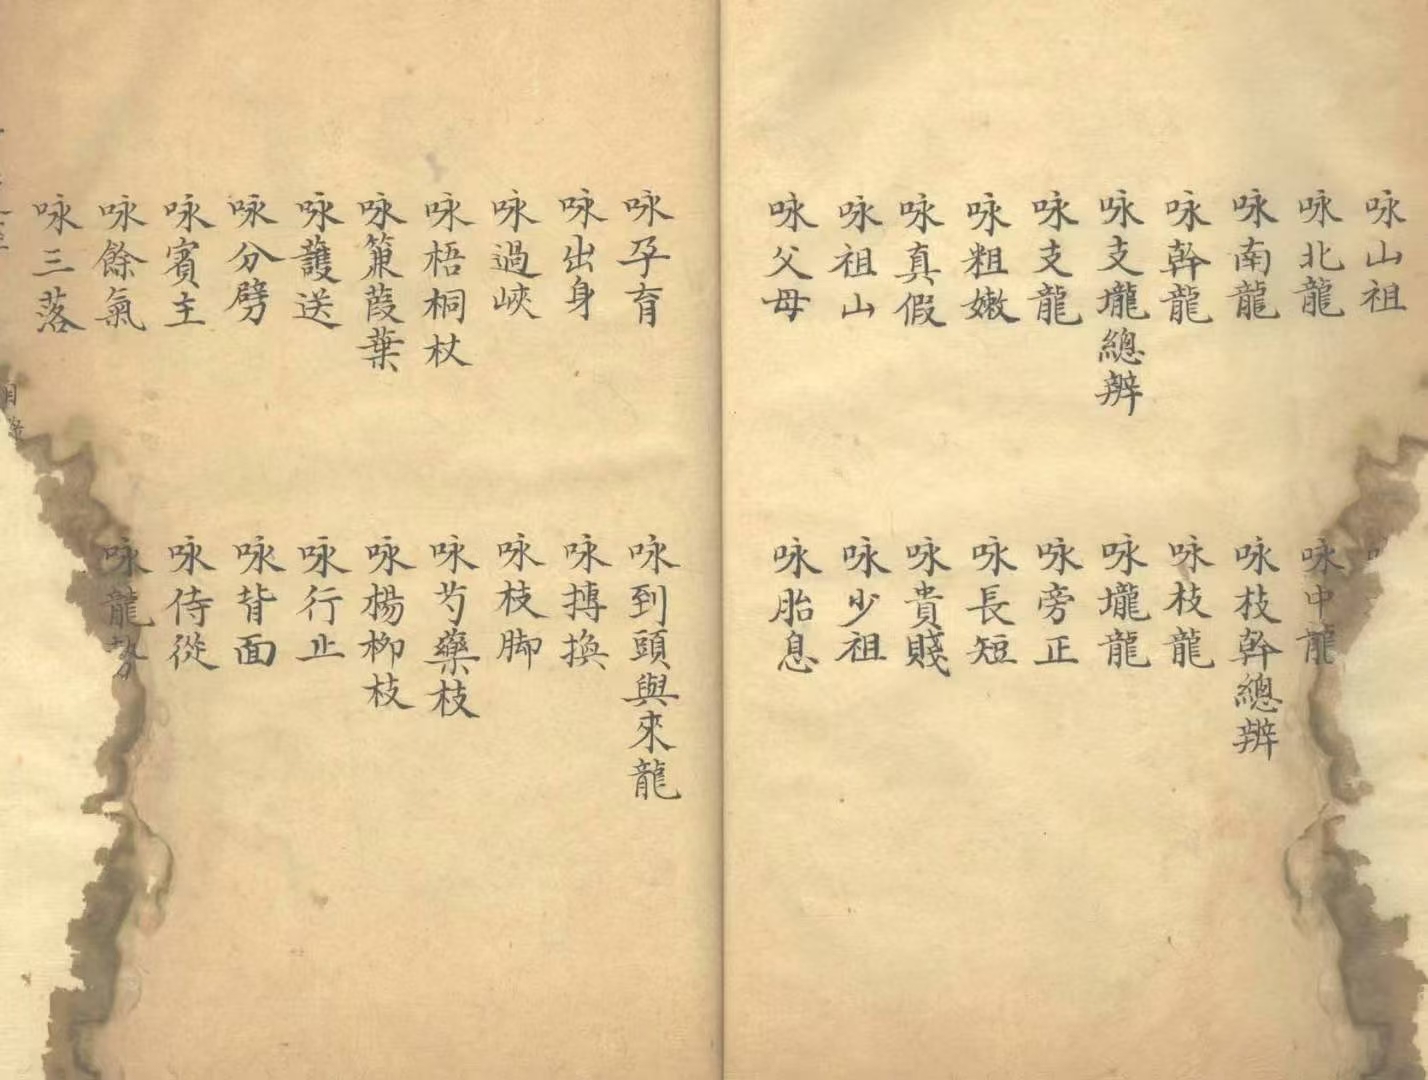 咏山祖
咏北龍
咏中龍
咏南龍
咏枝幹總辨
咏幹龍
咏枝龍
咏支壠總辨
咏壠龍
咏支龍
咏旁正
咏粗嫩
咏長短
咏真假
咏貴賤
咏祖山
咏少祖
咏父母
咏胎息
咏孕育
咏到頭與來龍
咏出身
咏摶換
咏過峽
咏枝脚
咏梧桐杖
咏芍藥枝
咏蒹葭葉
咏楊柳枝
咏護送
咏行止
咏分劈
咏背面
咏賓主
咏侍從
咏餘氣
咏龍勢
咏三落